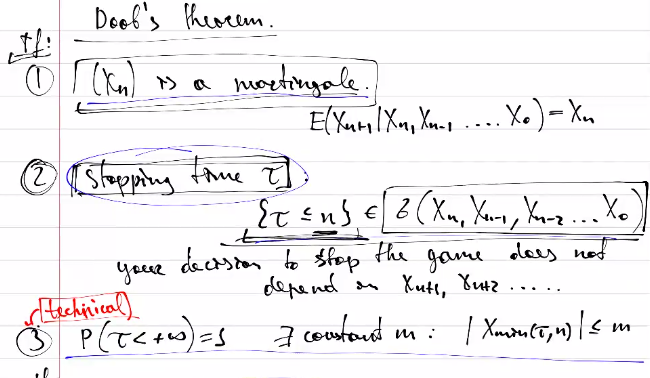 Doob's theorem.
If:
① (Xn) is a martingale.
E(Xn+1 | Xn, Xn-1 .... X0) = Xn
② Stopping time τ
{τ ≤ n} ∈ B(Xn, Xn-1, Xn-2 ... X0)
your decision to stop the game does not
depend on Xn+1, Xn+2 .....
technical
③ P(τ < +∞) = 1 ∃ constant m : | Xmin(τ,n) | ≤ m